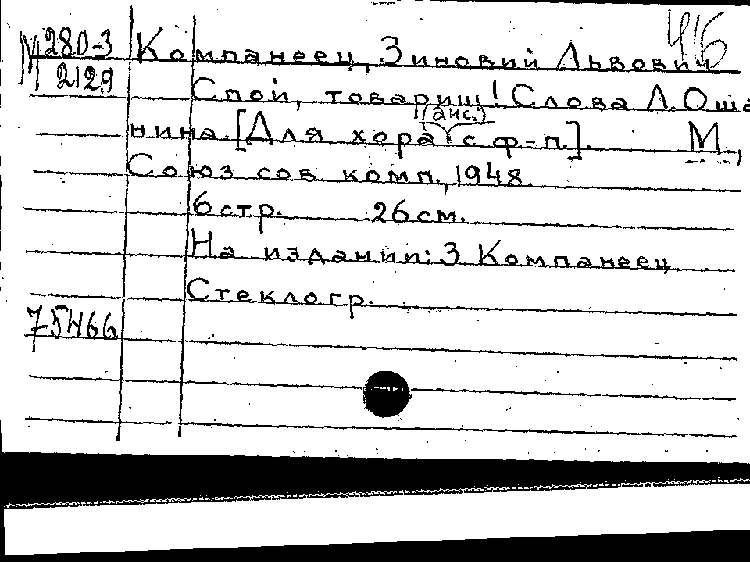 416
М 280-3 Компанеец, Зиновий Львович
2129 Спой, товарищ! Слова Л. Оша
(анс.)
нина. [Для хора с ф-п.]. М.,
Союз сов комп., 1948
6 стр. 26 см.
На издании: З Компанеец
Стеклогр.
75466